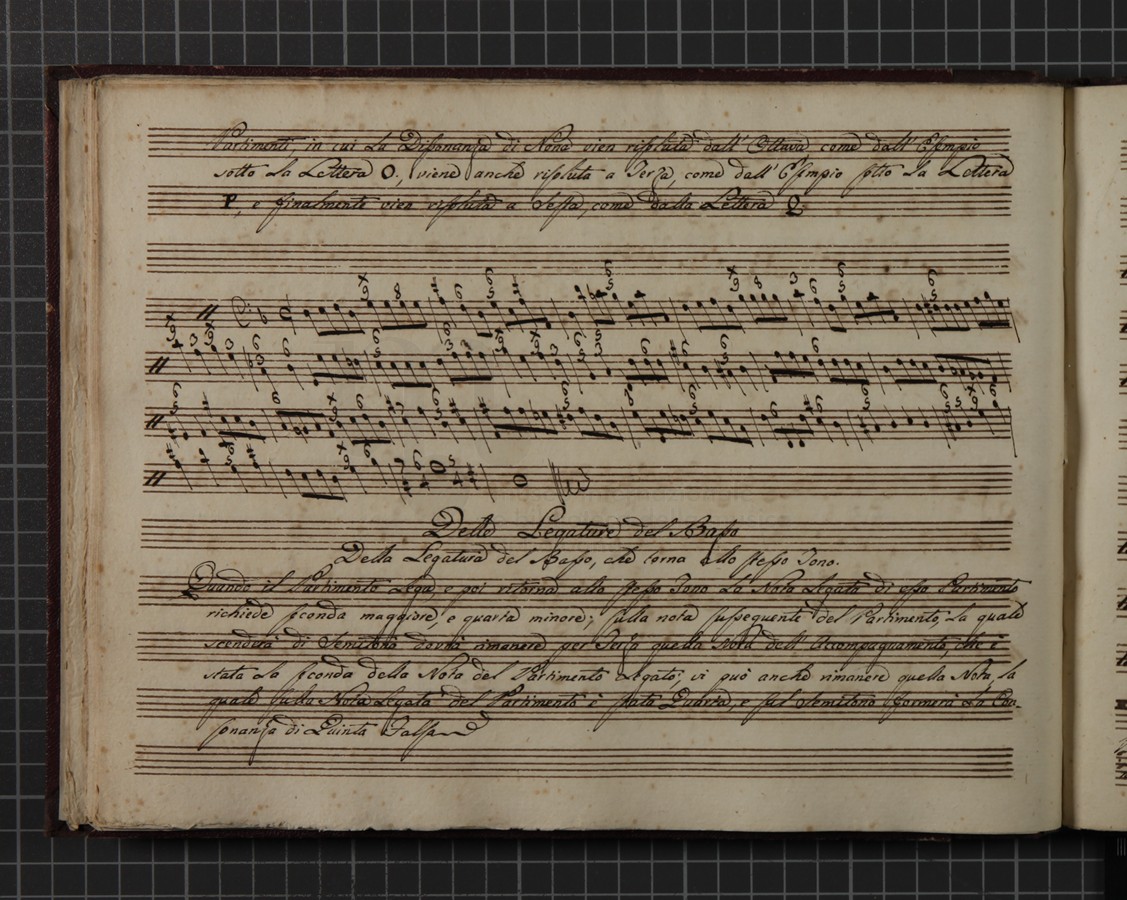 Partimenti, in cui la Dissonanza di Nona vien risoluta dall' Ottava come dall' Esempio
sotto la Lettera O., viene anche risoluta a Terza, come dall' Esempio sotto la Lettera
P, e finalmente vien risoluta a Sesta, come dalla Lettera Q.
Delle Legature del Basso
Della Legatura del Basso, che torna allo stesso Tono.
Quando il Partimento lega, e poi ritorna allo stesso Tono la Nota legata di esso Partimento
richiede seconda maggiore, e quarta minore; sulla nota susseguente del Partimento, la quale
scenderà di Semitono dovrà rimanere per Terza quella Nota dell' Accompagnamento, che è
stata la seconda della Nota del Partimento legato; vi può anche rimanere quella Nota, la
quale sulla Nota legata del Partimento è stata Quarta, e sul Semitono formerà la Con-
sonanza di Quinta Falsa